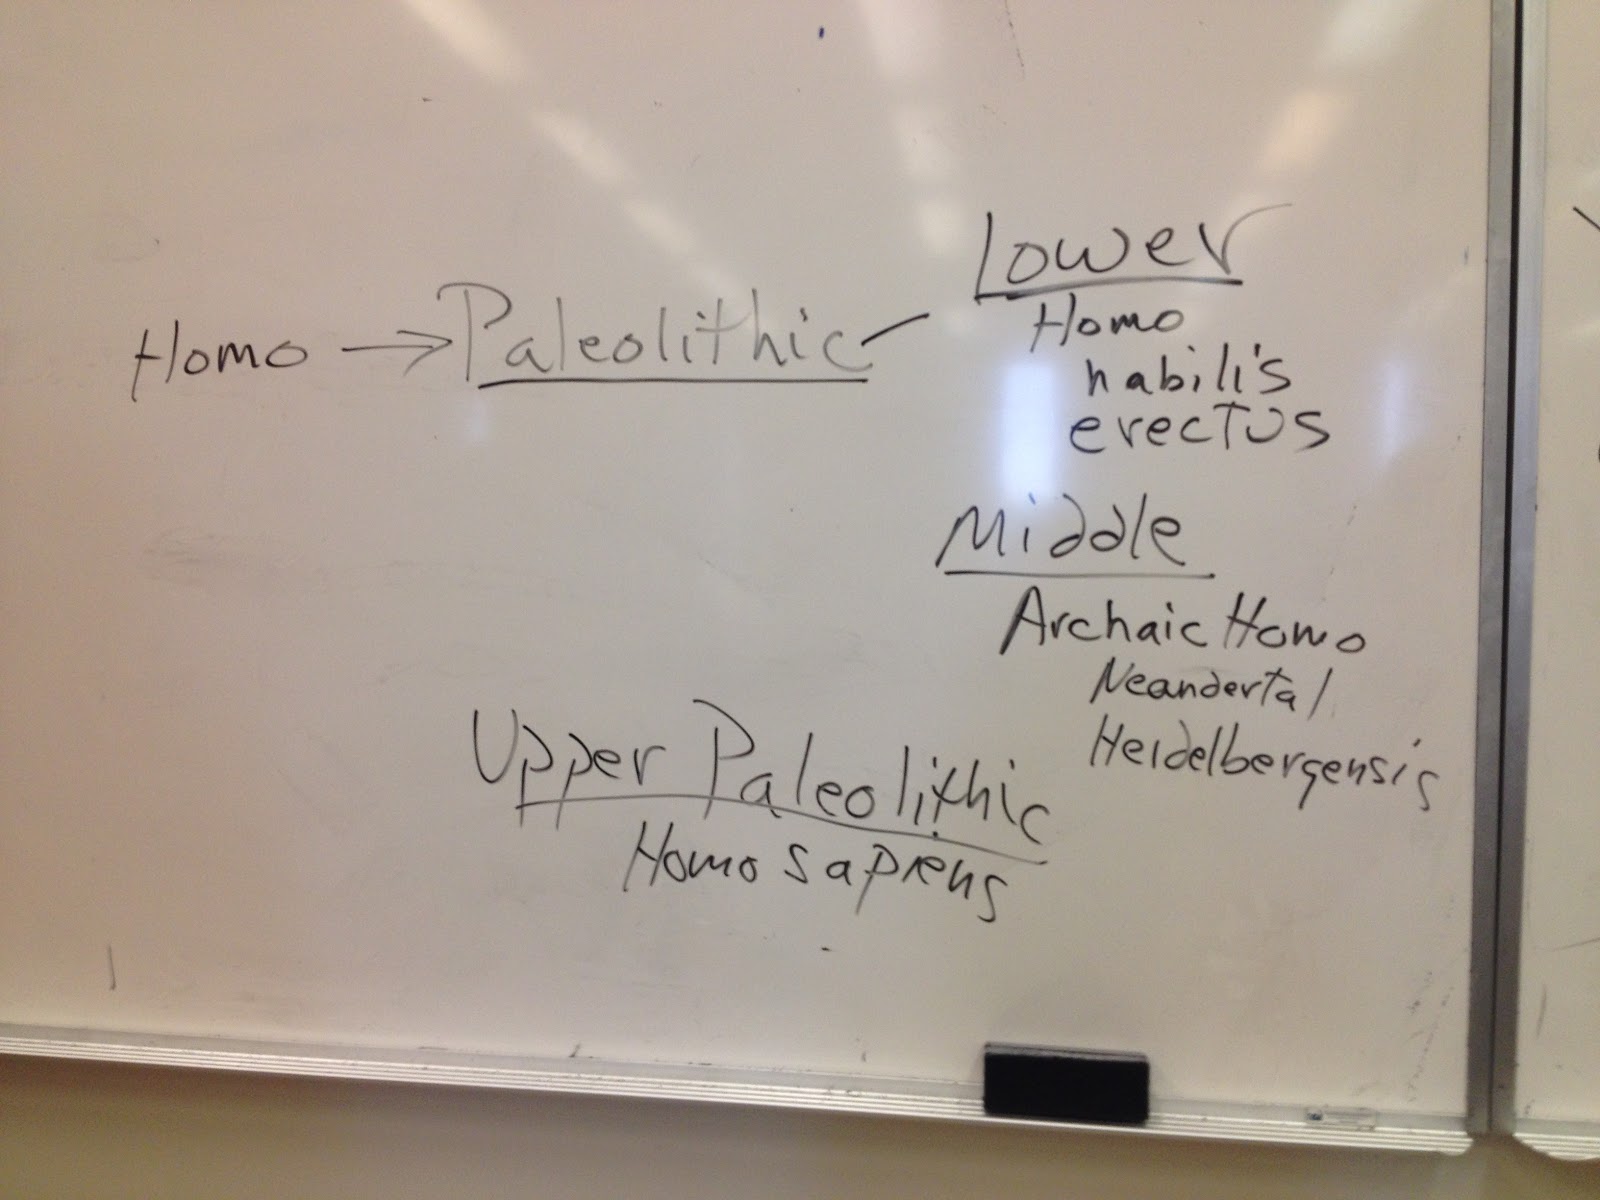 Homo → Paleolithic –
Lower
Homo
habilis
erectus
Middle
Archaic Homo
Neandertal
Heidelbergensis
Upper Paleolithic
Homo sapiens